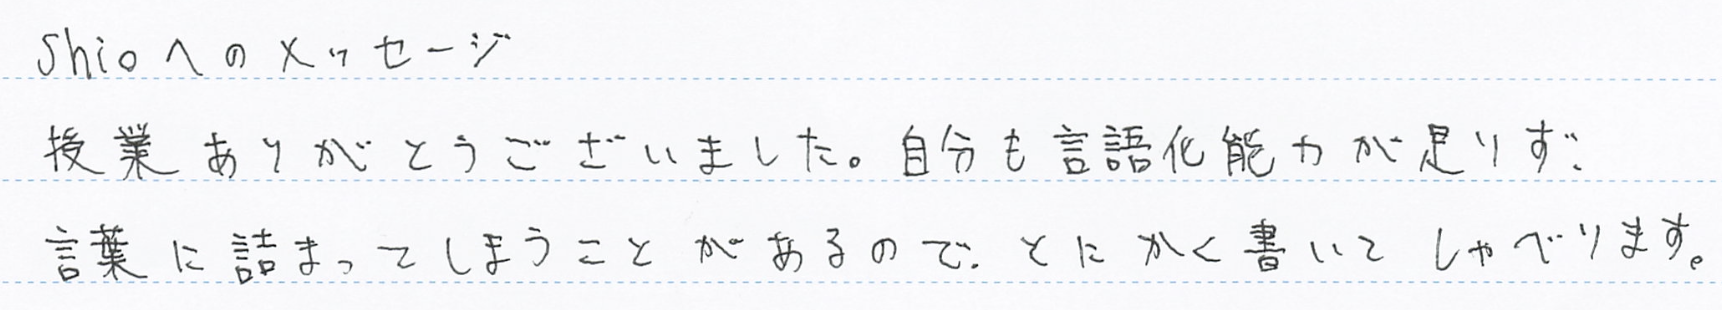 Shioへのメッセージ
授業ありがとうございました。自分も言語化能力が足りず、
言葉に詰まってしまうことがあるので、とにかく書いてしゃべります。